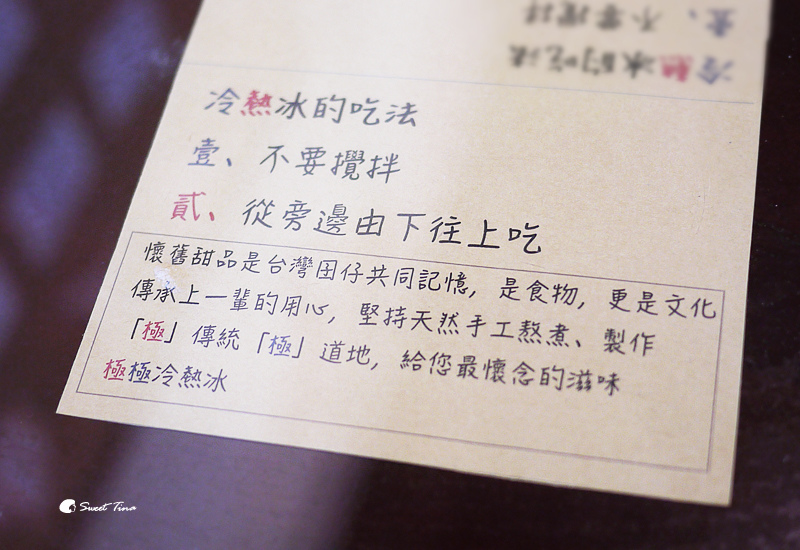 冷熱冰的吃法
壹、不要攪拌
冷熱冰的吃法
壹、不要攪拌
貳、從旁邊由下往上吃
懷舊甜品是台灣囝仔共同記憶,是食物,更是文化
傳承上一輩的用心,堅持天然手工熬煮、製作
「極」傳統「極」道地,給您最懷念的滋味
極極冷熱冰
Sweet Tina